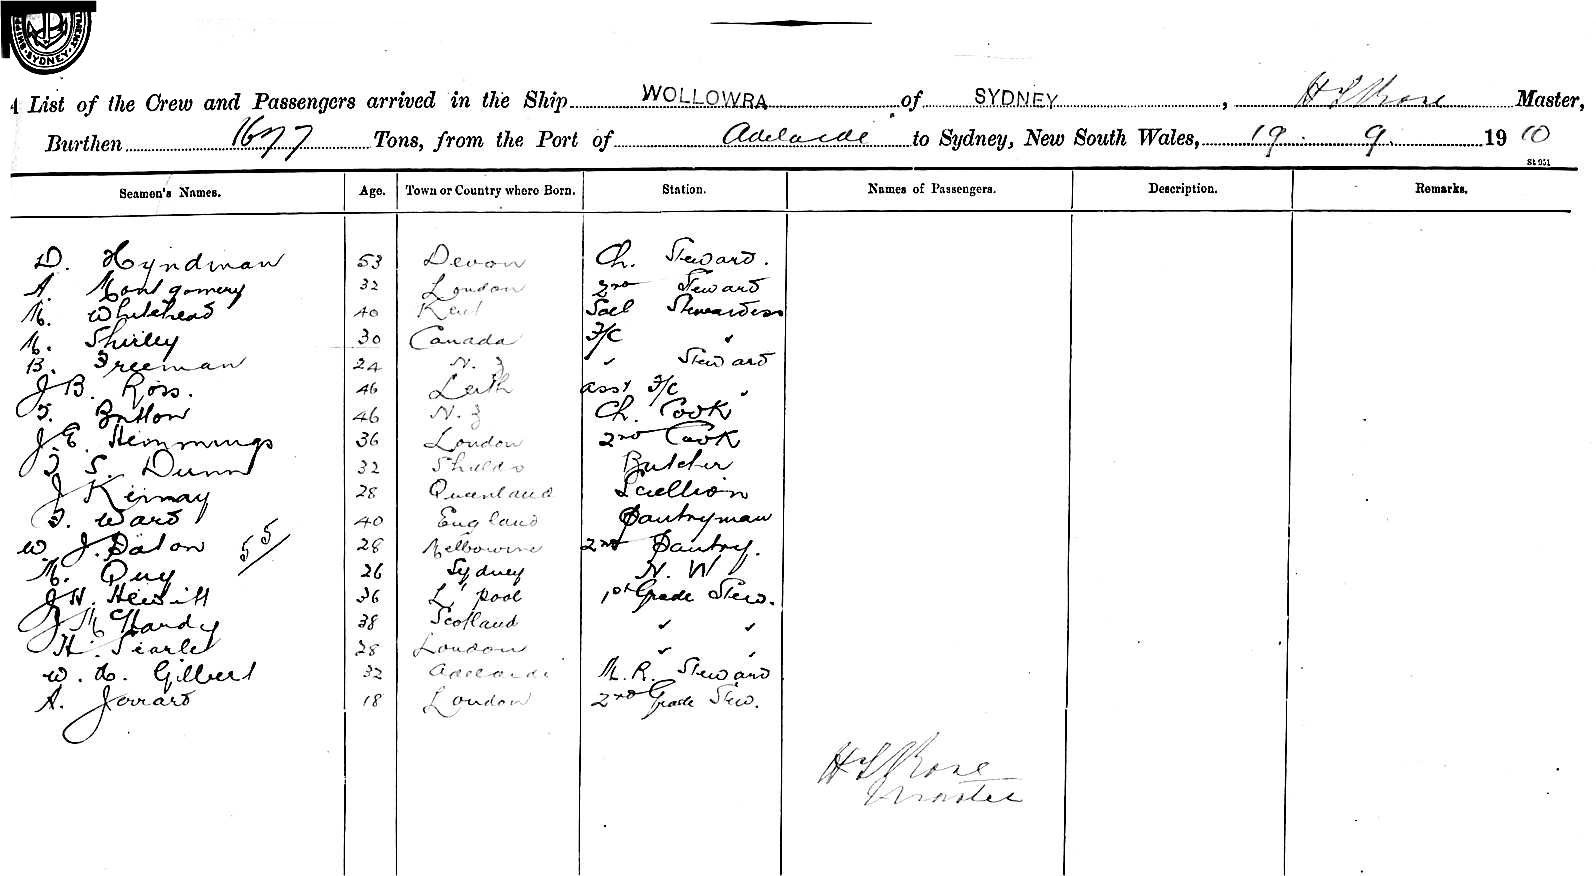 SYDNEY
A List of the Crew and Passengers arrived in the Ship WOLLOWRA of SYDNEY, H S Rose Master,
Burthen 1677 Tons, from the Port of Adelaide to Sydney, New South Wales, 19 . 9. 1910
St 951
Seamen's Names. Age. Town or Country where Born. Station. Names of Passengers. Description. Remarks.
D. Hyndman 53 Devon Ch. Steward.
A. Montgomery 32 London 2nd Steward
M. Whitehead 40 Kent Sal Stewardess
M. Shirley 30 Canada F/C "
B. Freeman 24 N. Z " Steward
J B. Ross. 46 Leith asst F/C "
T. Button 46 N. Z Ch. Cook
J. E. Hemmings 36 London 2nd Cook
T S. Dunn 32 Shields Butcher
J Kemay 28 Queenland Scullion
T. Ward 40 England Pantryman
W. J. Paton 28 Melbourne 2nd Pantry.
55/
M. Quy 26 Sydney N. W
J H. Hewitt 36 L'pool 1st Grade Stew.
J McHardy 38 Scotland " "
H. Searle 28 London " "
W. H. Gilbert 32 Adelaide M. R. Steward
A. Jerrard 18 London 2nd Grade Stew.
H S Rose
Master